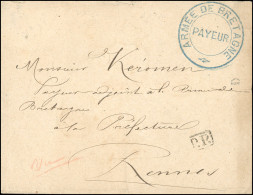 ARMÉE DE BRETAGNE
PAYEUR
Monsieur Kéromen
Payeur adjoint à la
Bretagne
à la Préfecture
P.P.
Rennes